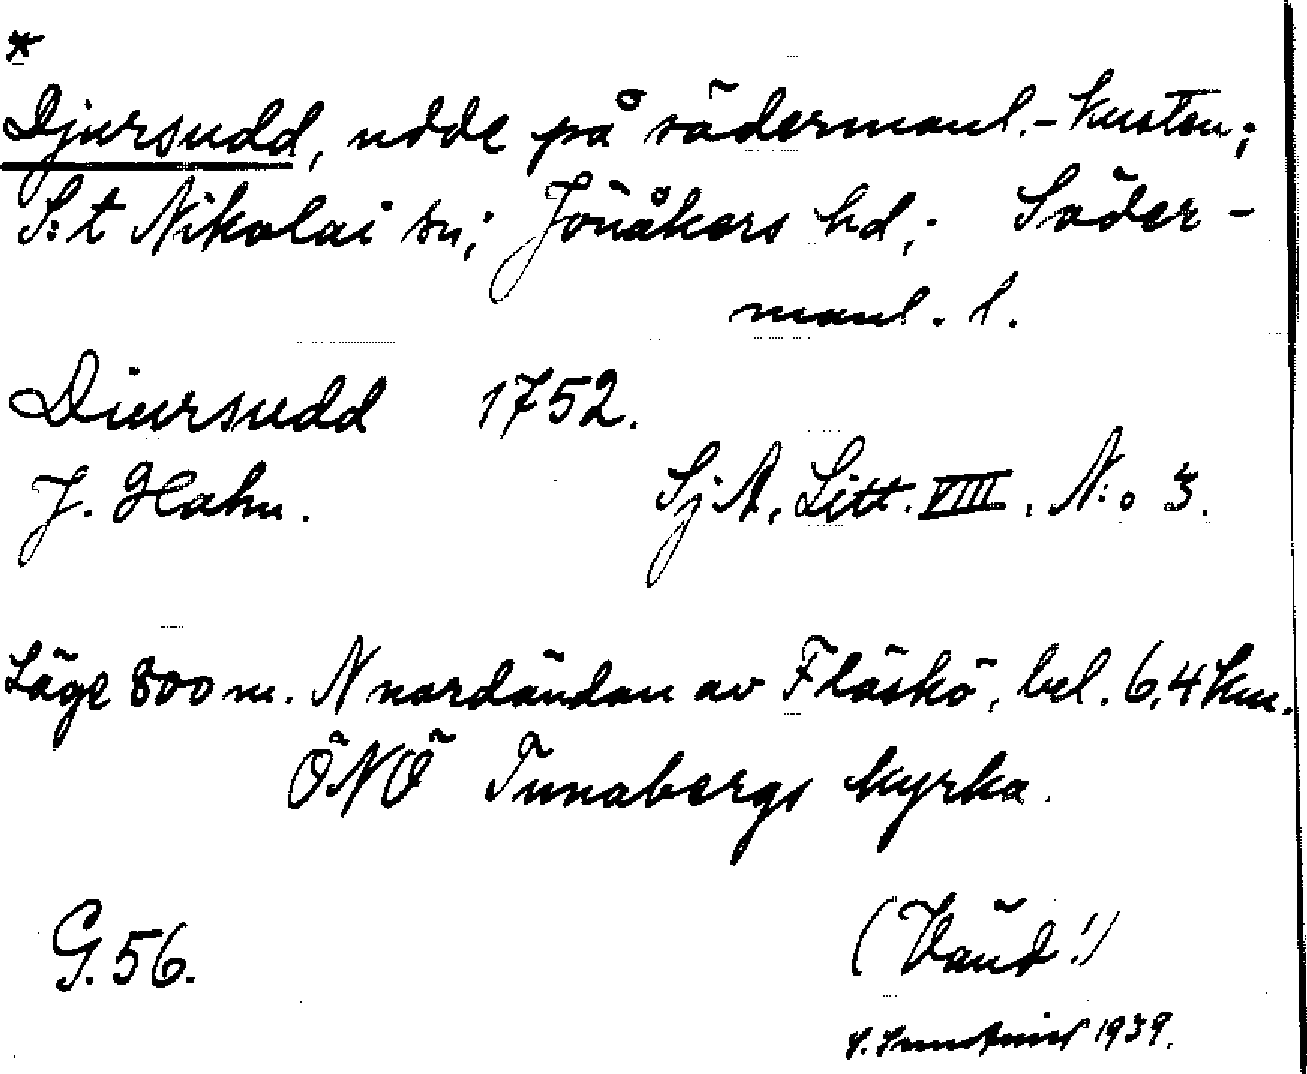 *
Djursudd, udde på södermanl.-kusten;
S:t Nikolai sn; Jönåkers hd; Söder-
manl. l.
Diursudd 1752.
J. Hahn. SjA. Litt. VIII. N:o 3.
Läge 800 m. N nordändan av Fläskö, bel. 6,4 km.
ÖNÖ Tunabergs kyrka.
G. 56. (Vänd!)
1939.